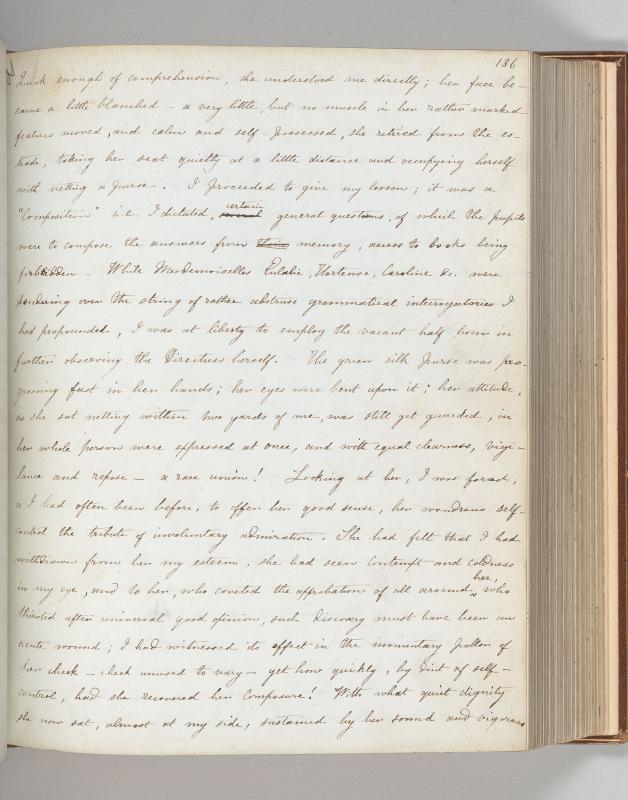 136
Quick enough of comprehension, she understood me directly; her face be-
came a little blanched — a very little, but no muscle in her rather marked
features moved, and calm and self-possessed, she retired from the es-
trade, taking her seat quietly at a little distance and occupying herself
with netting a purse. I proceeded to give my lesson; it was a
certain
"Composition" i.e. I dictated, several general questions, of which the pupils
were to compose the answers from their memory, access to books being
forbidden. While Mesdemoiselles Eulalie, Hortense, Caroline &c. were
pondering over the string of rather abstruse grammatical interrogatories I
had propounded, I was at liberty to employ the vacant half hour in
further observing the Directress herself. The green silk purse was pro-
gressing fast in her hands; her eyes were bent upon it; her attitude,
as she sat netting within two yards of me, was still yet guarded, in
her whole person were expressed at once, and with equal clearness, vigi-
lance and repose — a rare union! Looking at her, I was forced,
as I had often been before, to offer her good sense, her wondrous self-
control the tribute of involuntary admiration. She had felt that I had
withdrawn from her my esteem, she had seen contempt and coldness
her,
in my eye, and to her, who coveted the approbation of all around, who
thirsted after universal good opinion, such discovery must have been an
acute wound; I had witnessed its effect in the momentary pallor of
her cheek — cheek unused to vary — yet how quickly, by dint of self-
control, had she recovered her composure! With what quiet dignity
she now sat, almost at my side, sustained by her sound and vigorous